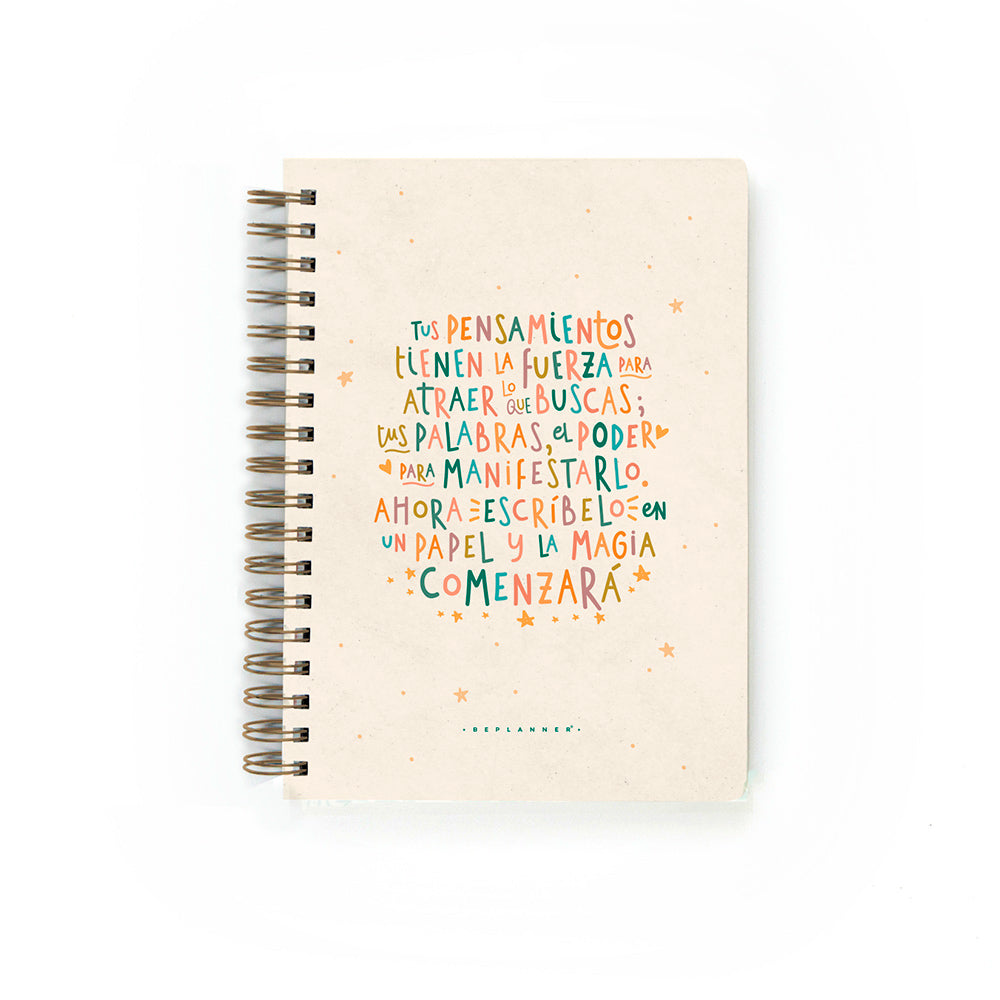 TUS PENSAMIENTOS
TIENEN LA FUERZA PARA
ATRAER LO QUE BUSCAS;
TUS PALABRAS, EL PODER
PARA MANIFESTARLO.
AHORA ESCRÍBELO EN
UN PAPEL Y LA MAGIA
COMENZARÁ
• BEPLANNER® •